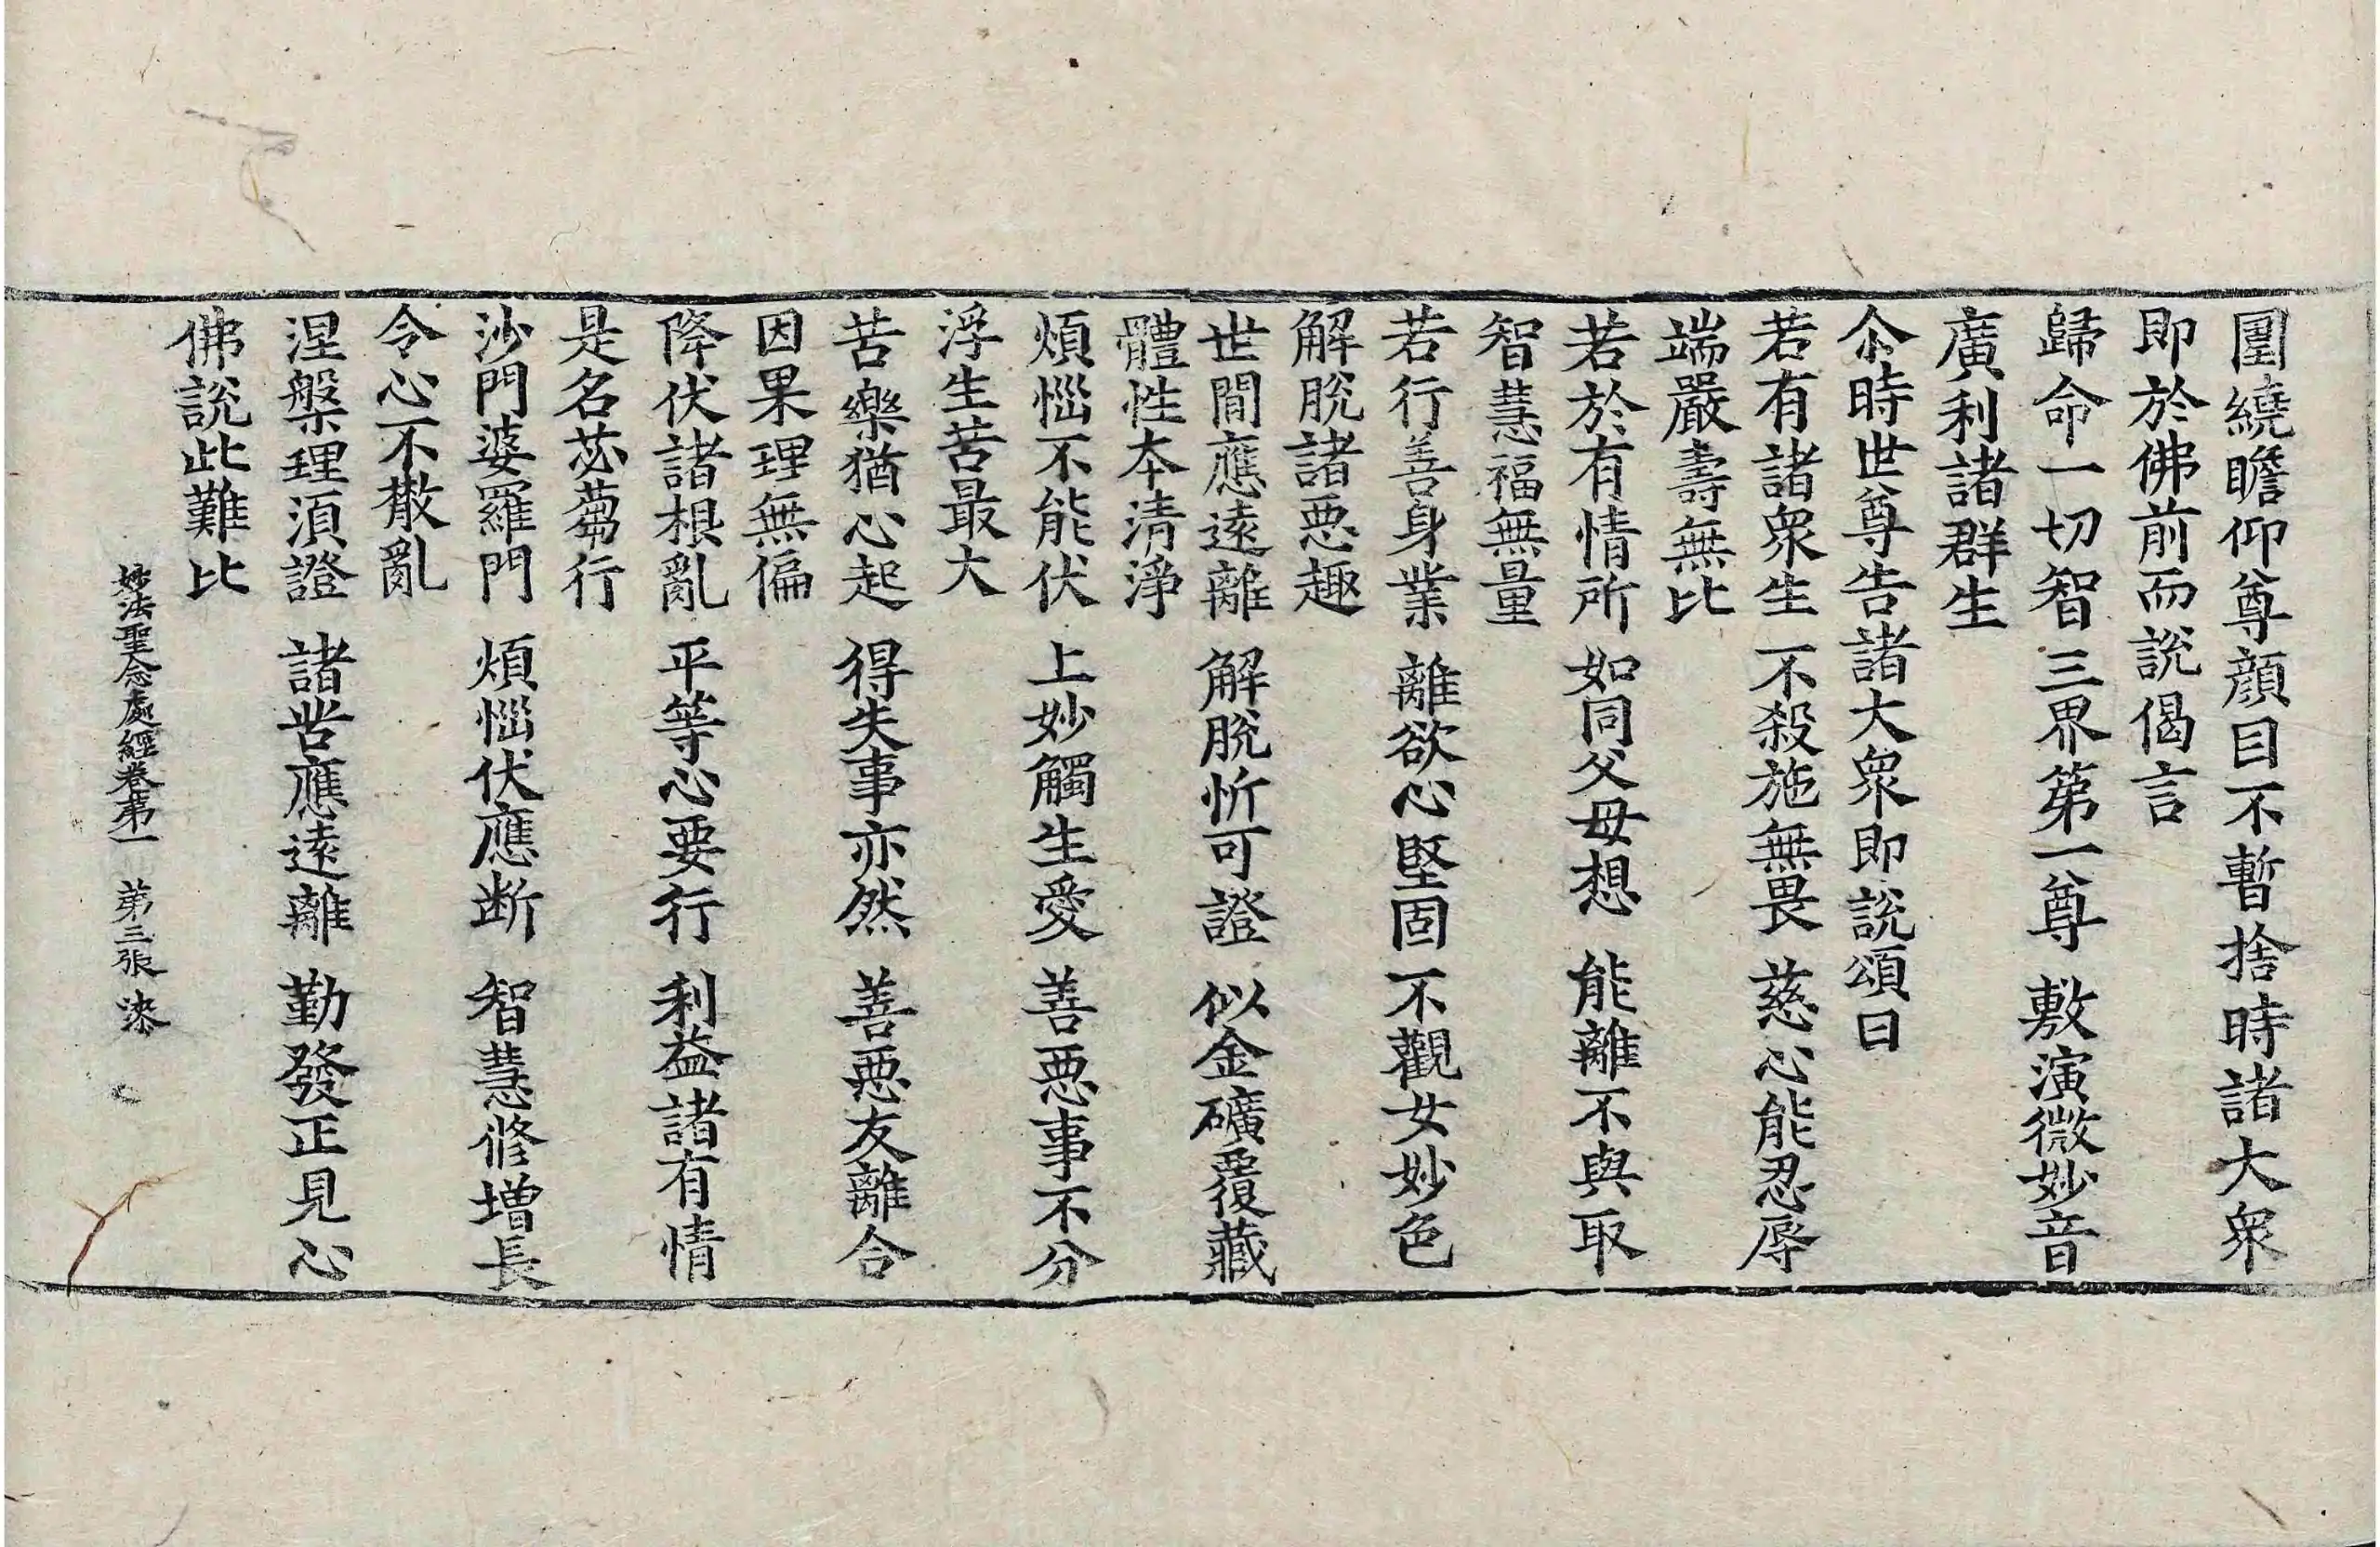 圍繞瞻仰尊顔目不暫捨時諸大衆
即於佛前而說偈言
歸命一切智 三界第一尊 敷演微妙音
廣利諸群生
尒時世尊告諸大衆即說頌曰
若有諸衆生 不殺施無畏 慈心能忍辱
端嚴壽無比
若於有情所 如同父母想 能離不與取
智慧福無量
若行善身業 離欲心堅固 不觀女妙色
解脫諸惡趣
世間應遠離 解脫忻可證 似金礦覆藏
體性本清淨
煩惱不能伏 上妙觸生愛 善惡事不分
浮生苦最大
苦樂猶心起 得失事亦然 善惡友離合
因果理無偏
降伏諸根亂 平等心要行 利益諸有情
是名苾蒭行
沙門婆羅門 煩惱伏應断 智慧修增長
令心不散亂
涅槃理須證 諸苦應遠離 勤發正見心
佛說此難比
妙法聖念處經卷第一 第三張